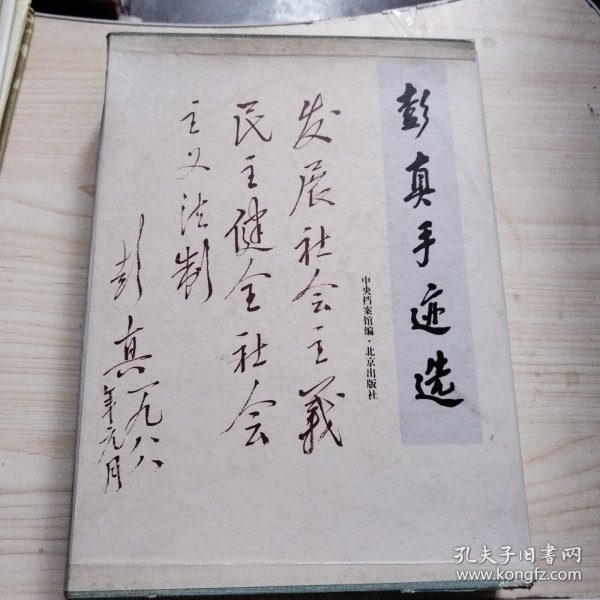 彭真手迹选
中央档案馆编·北京出版社
发展社会主義
民主健全社会
主义法制
彭真一九八八
年元月
孔夫子旧书网
www.kongfz.com